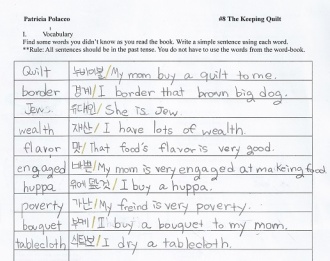 Patricia Polacco #8 The Keeping Quilt
I. Vocabulary
Find some words you didn't know as you read the book. Write a simple sentence using each word.
**Rule: All sentences should be in the past tense. You do not have to use the words from the word-book.
Quilt 누비이불/My mom buy a quilt to me.
border 경계/I border that brown big dog.
Jew 유대인/She is Jew
wealth 재산/I have lots of wealth.
flavor 맛/That food's flavor is very good.
engaged 바쁜/My mom is very engaged at makeing food
huppa /I buy a huppa.
poverty 가난/My freind is very poverty.
bouquet 부케/I buy a bouquet to my mom.
tablecloth 식탁보/I dry a tablecloth.